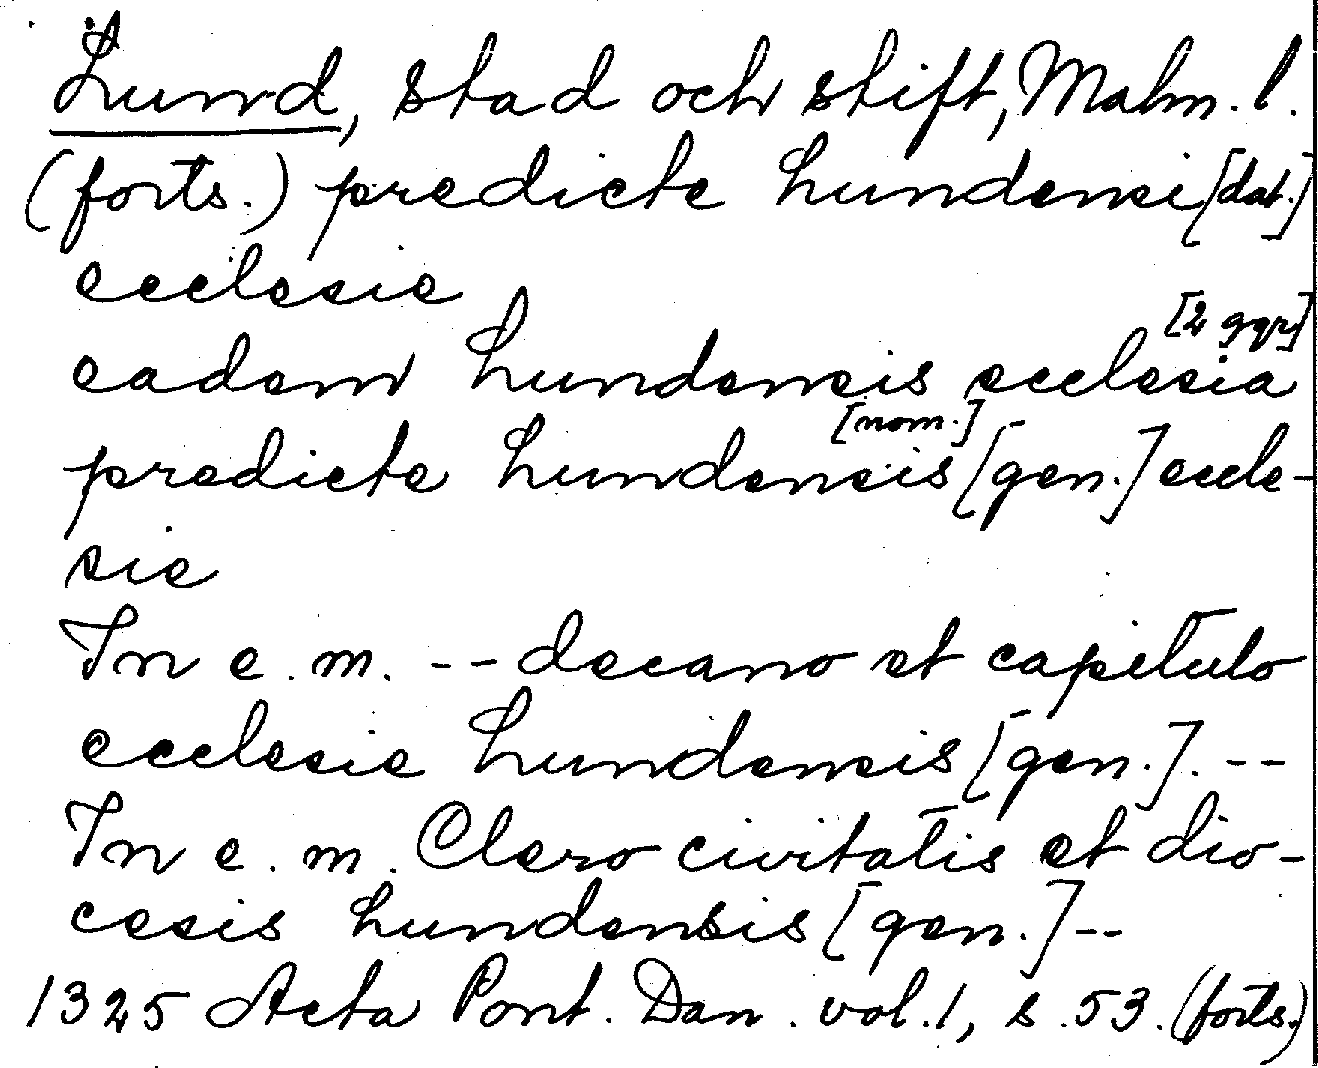 Lund, stad och stift, Malm. l.
(forts.) predicte Lundensi [dat.]
ecclesie
[2 ggr]
eadem Lundensis ecclesia
[nom.]
predicte Lundensis [gen.] eccle-
sie
In e. m. -- decano et capitulo
ecclesie Lundensis [gen.]. --
In e. m. Clero civitatis et dio-
cesis Lundensis [gen.] --
1325 Acta Pont. Dan. vol. 1, s. 53. (forts.)